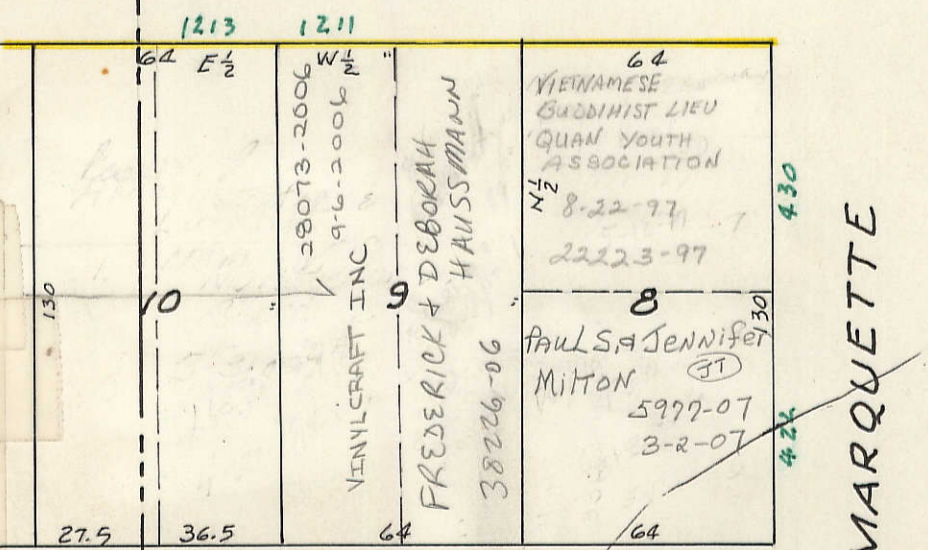 1213
1211
64
E 1/2
W 1/2 "
28073-2006
9-6-2006
VINYLCRAFT INC
FREDERICK & DEBORAH
HAUSSMANN
38226-06
64
VIETNAMESE
BUDDIHIST LIEU
QUAN YOUTH
ASSOCIATION
N 1/2
8-22-97
22223-97
430
MARQUETTE
130
10
"
9
"
8
130
PAUL S. & JENNIFER
MILTON
JT
5977-07
3-2-07
422
27.5
36.5
64
64